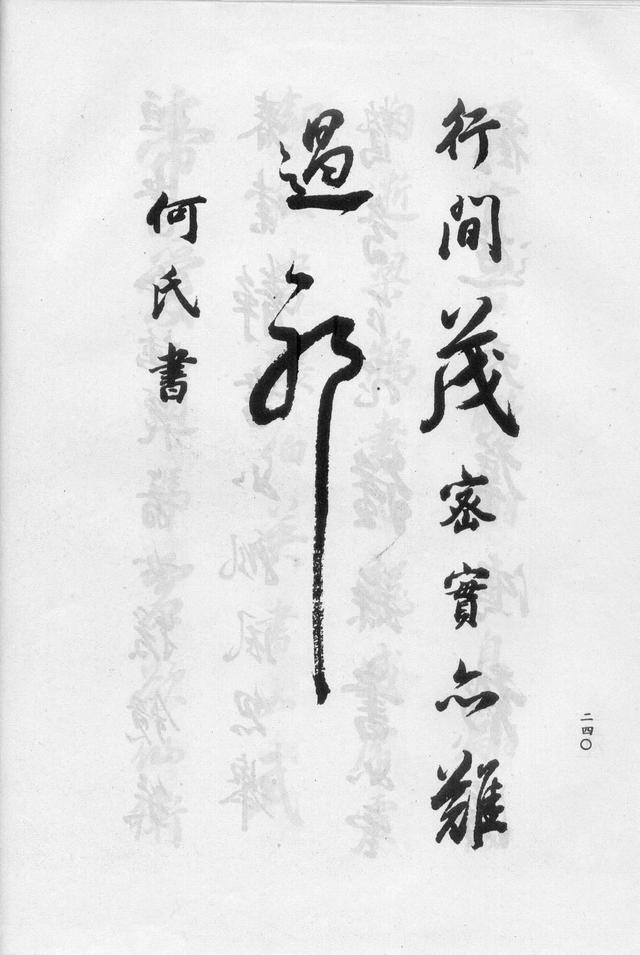 行間茂密實亦難
過耶
何氏書
二四〇